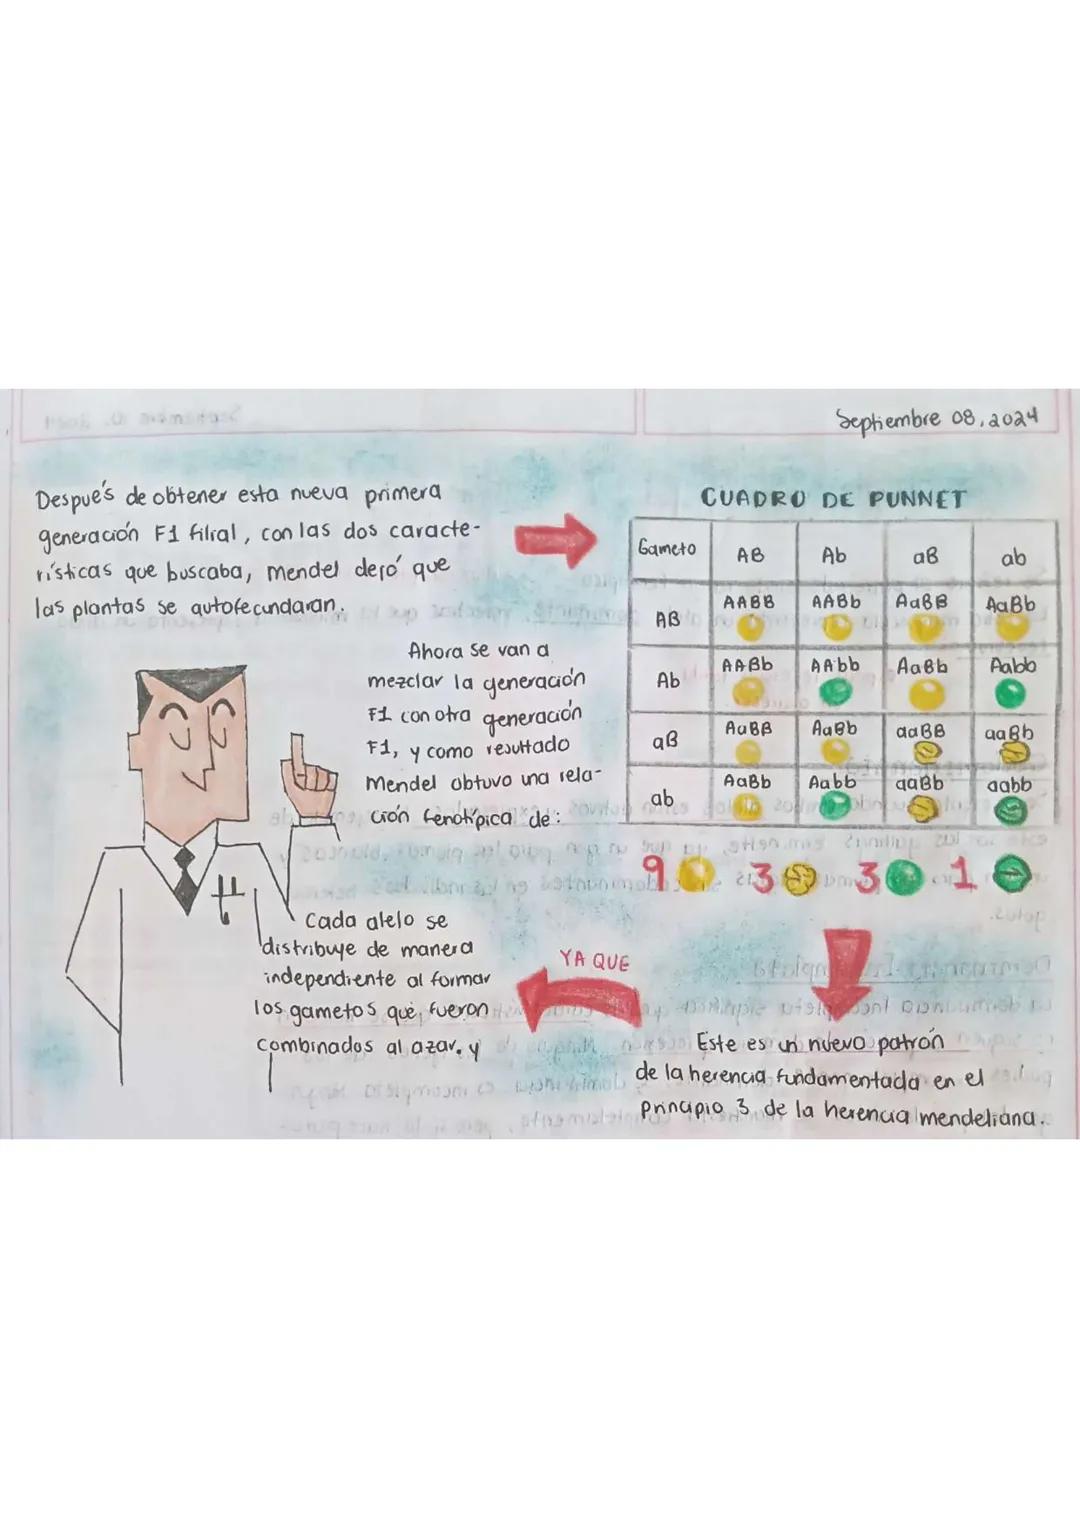 Septiembre 08, 2024
Después de obtener esta nueva primera
generación F1 filial, con las dos caracte-
rísticas que buscaba, mendel dejó que
las plantas se autofecundaran.
Ahora se van a
mezclar la generación
F1 con otra generación
F1, y como resultado
Mendel obtuvo una rela-
ción fenotípica de:
CUADRO DE PUNNET
Gameto AB Ab aB ab
AB AABB AABb AaBB AaBb
Ab AABb AAbb AaBb Aabb
aB AaBB AaBb aaBB aaBb
ab AaBb Aabb aaBb aabb
9 3 3 1
Este es un nuevo patrón
de la herencia fundamentada en el
principio 3 de la herencia mendeliana.
YA QUE
Cada alelo se
distribuye de manera
independiente al formar
los gametos que fueron
combinados al azar. y